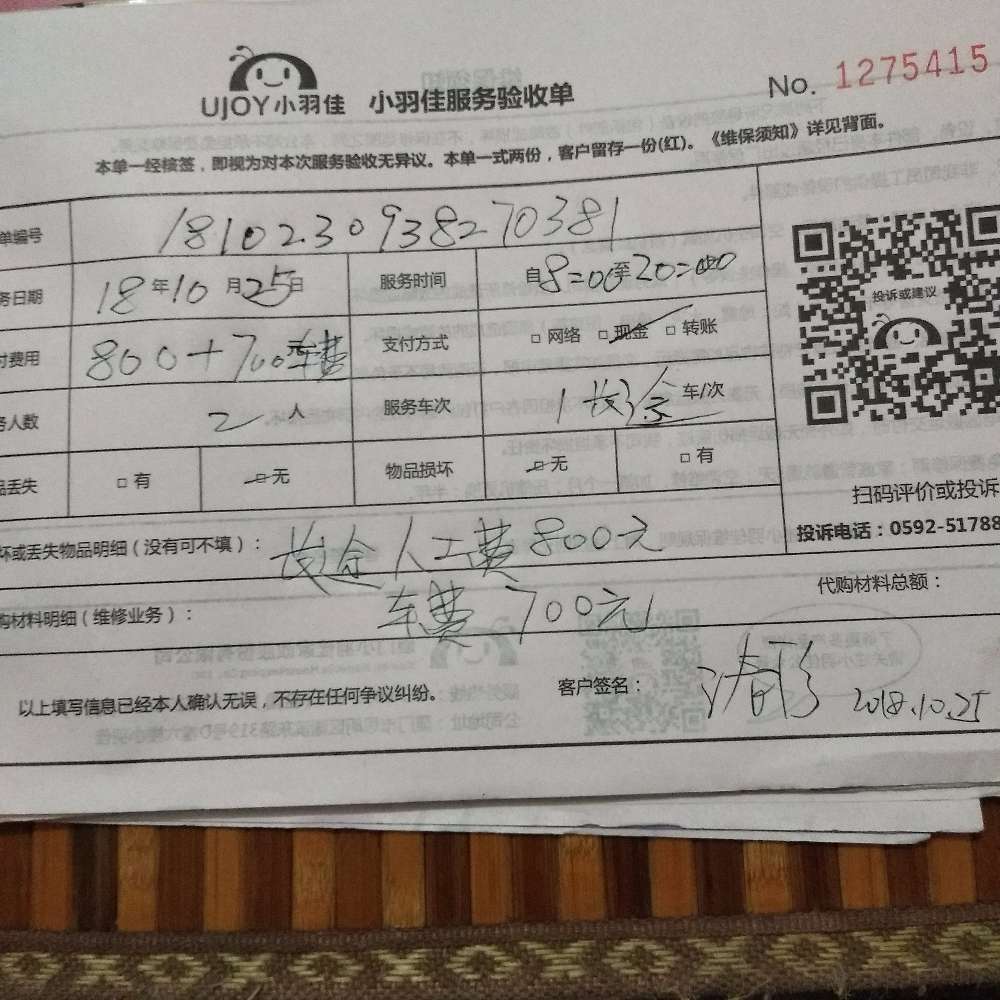 UJOY小羽佳 小羽佳服务验收单 No. 1275415
本单一经核签，即视为对本次服务验收无异议。本单一式两份，客户留存一份(红)。《维保须知》详见背面。
单编号 1810230938270381
务日期 18年10月25日 服务时间 自8:00至20:00
付费用 800+700车费 支付方式 □网络 □现金 □转账
投诉或建议
务人数 2人 服务车次 1 车/次
品丢失 □有 □无 物品损坏 □无 □有
扫码评价或投诉
投诉电话：0592-51788
坏或丢失物品明细（没有可不填）： 人工费800元
代购材料总额：
购材料明细（维修业务）： 车费700元
以上填写信息已经本人确认无误，不存在任何争议纠纷。 客户签名： 2018.10.25